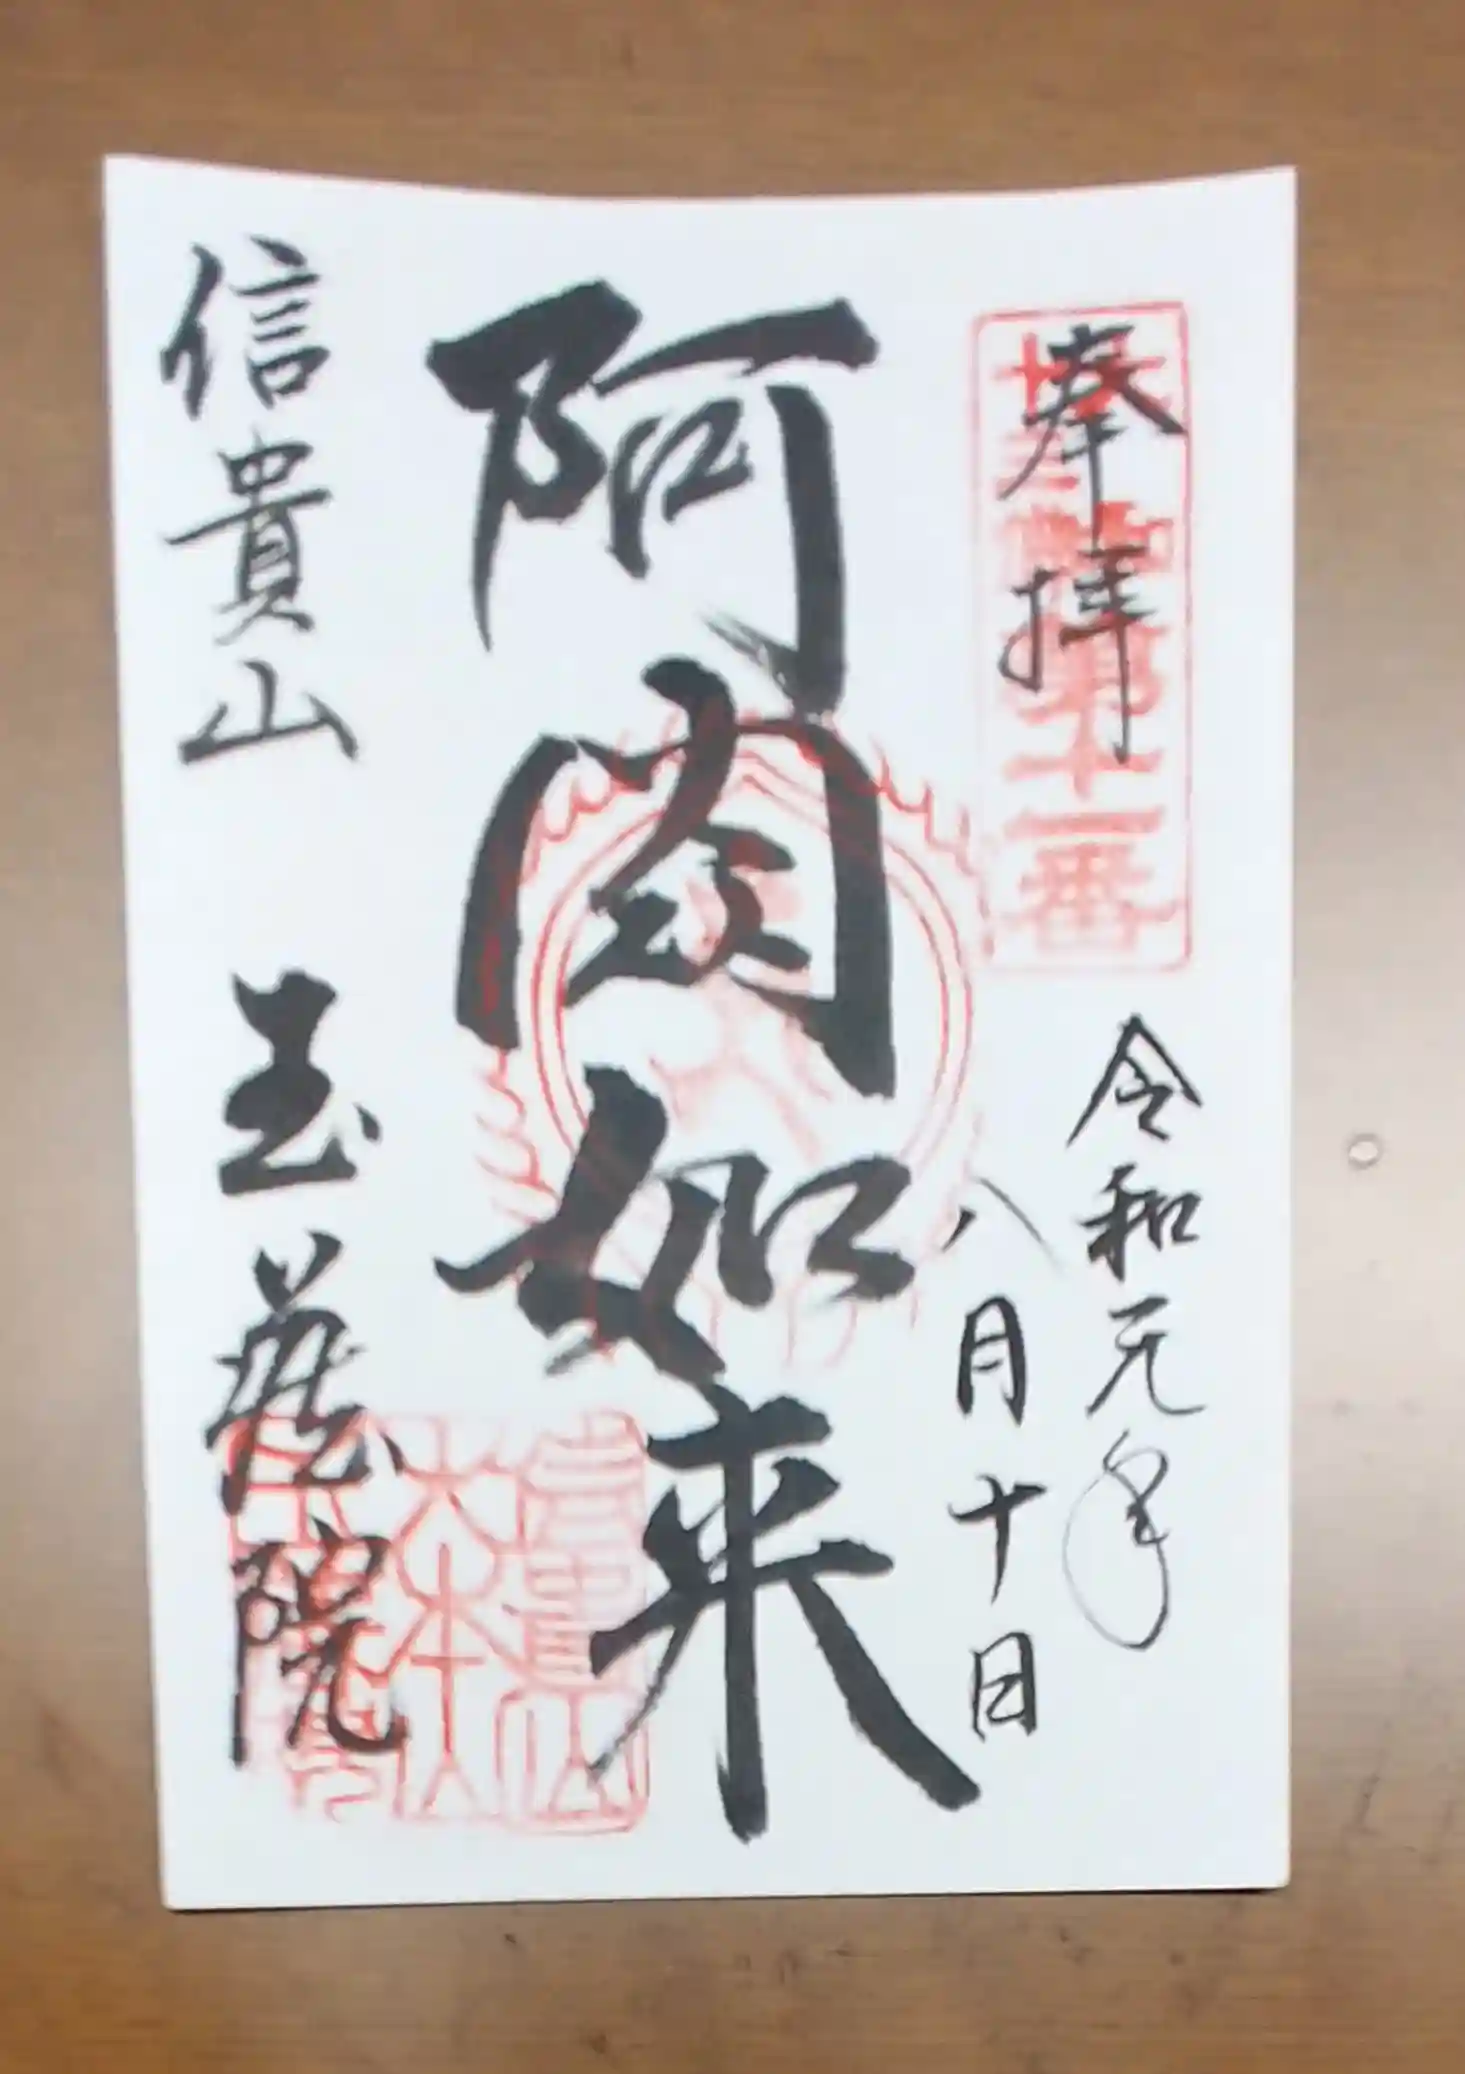 奉拝
第十一番
令和元年
八月十日
阿閦如来
信貴山 玉蔵院
信貴山
大本山